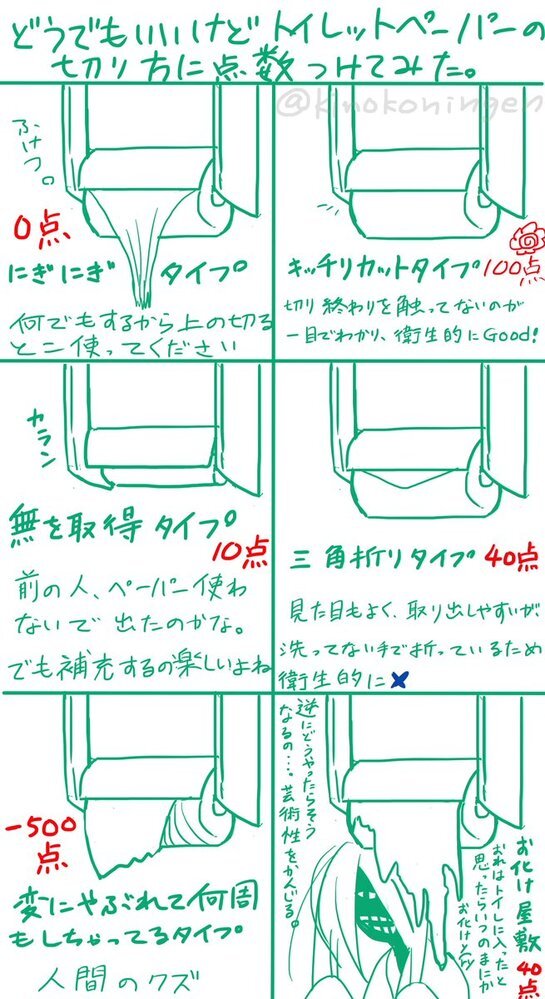 どうでもいいけどトイレットペーパーの
切り方に点数つけてみた。
@kinokoningen
ふけつ。
0点
にぎにぎ タイプ
何でもするから上の切る
とこ使ってください
キッチリカットタイプ 100点
切り終わりを触ってないのが
一目でわかり、衛生的にGood!
カラン
無を取得タイプ
10点
前の人、ペーパー使わ
ないで出たのかな。
でも補充するの楽しいよね
三角折りタイプ 40点
見た目もよく、取り出しやすいが、
洗ってない手で折っているため
衛生的に✖
-500
点
変にやぶれて何周
もしちゃってるタイプ
人間のクズ
お化け屋敷 40点
おれはトイレに入ったと
思ったらいつのまにか
逆にどうやったらそう
なるの…。芸術性をかんじる。